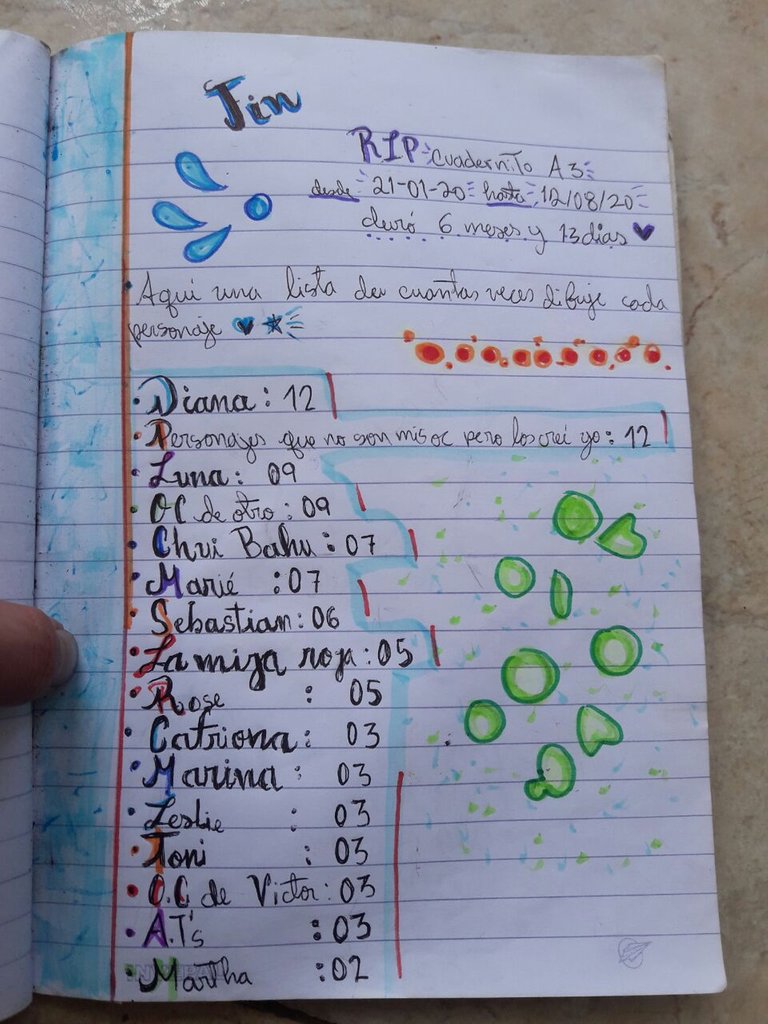 Jin
RIP Cuadernito A3
desde 21-01-20 hasta 12/08/20
duró 6 meses y 13 dias
Aqui una lista de cuantas veces dibuje cada
personaje
Diana: 12
Personajes que no son mis oc pero los creí yo: 12
Luna: 09
OC de otro: 09
Chui Bahu: 07
Marié :07
Sebastian: 06
La miga roja: 05
Rose : 05
Catriona: 03
Marina: 03
Leslie : 03
Toni : 03
O.C de Victor: 03
A.T's : 03
Martha :02